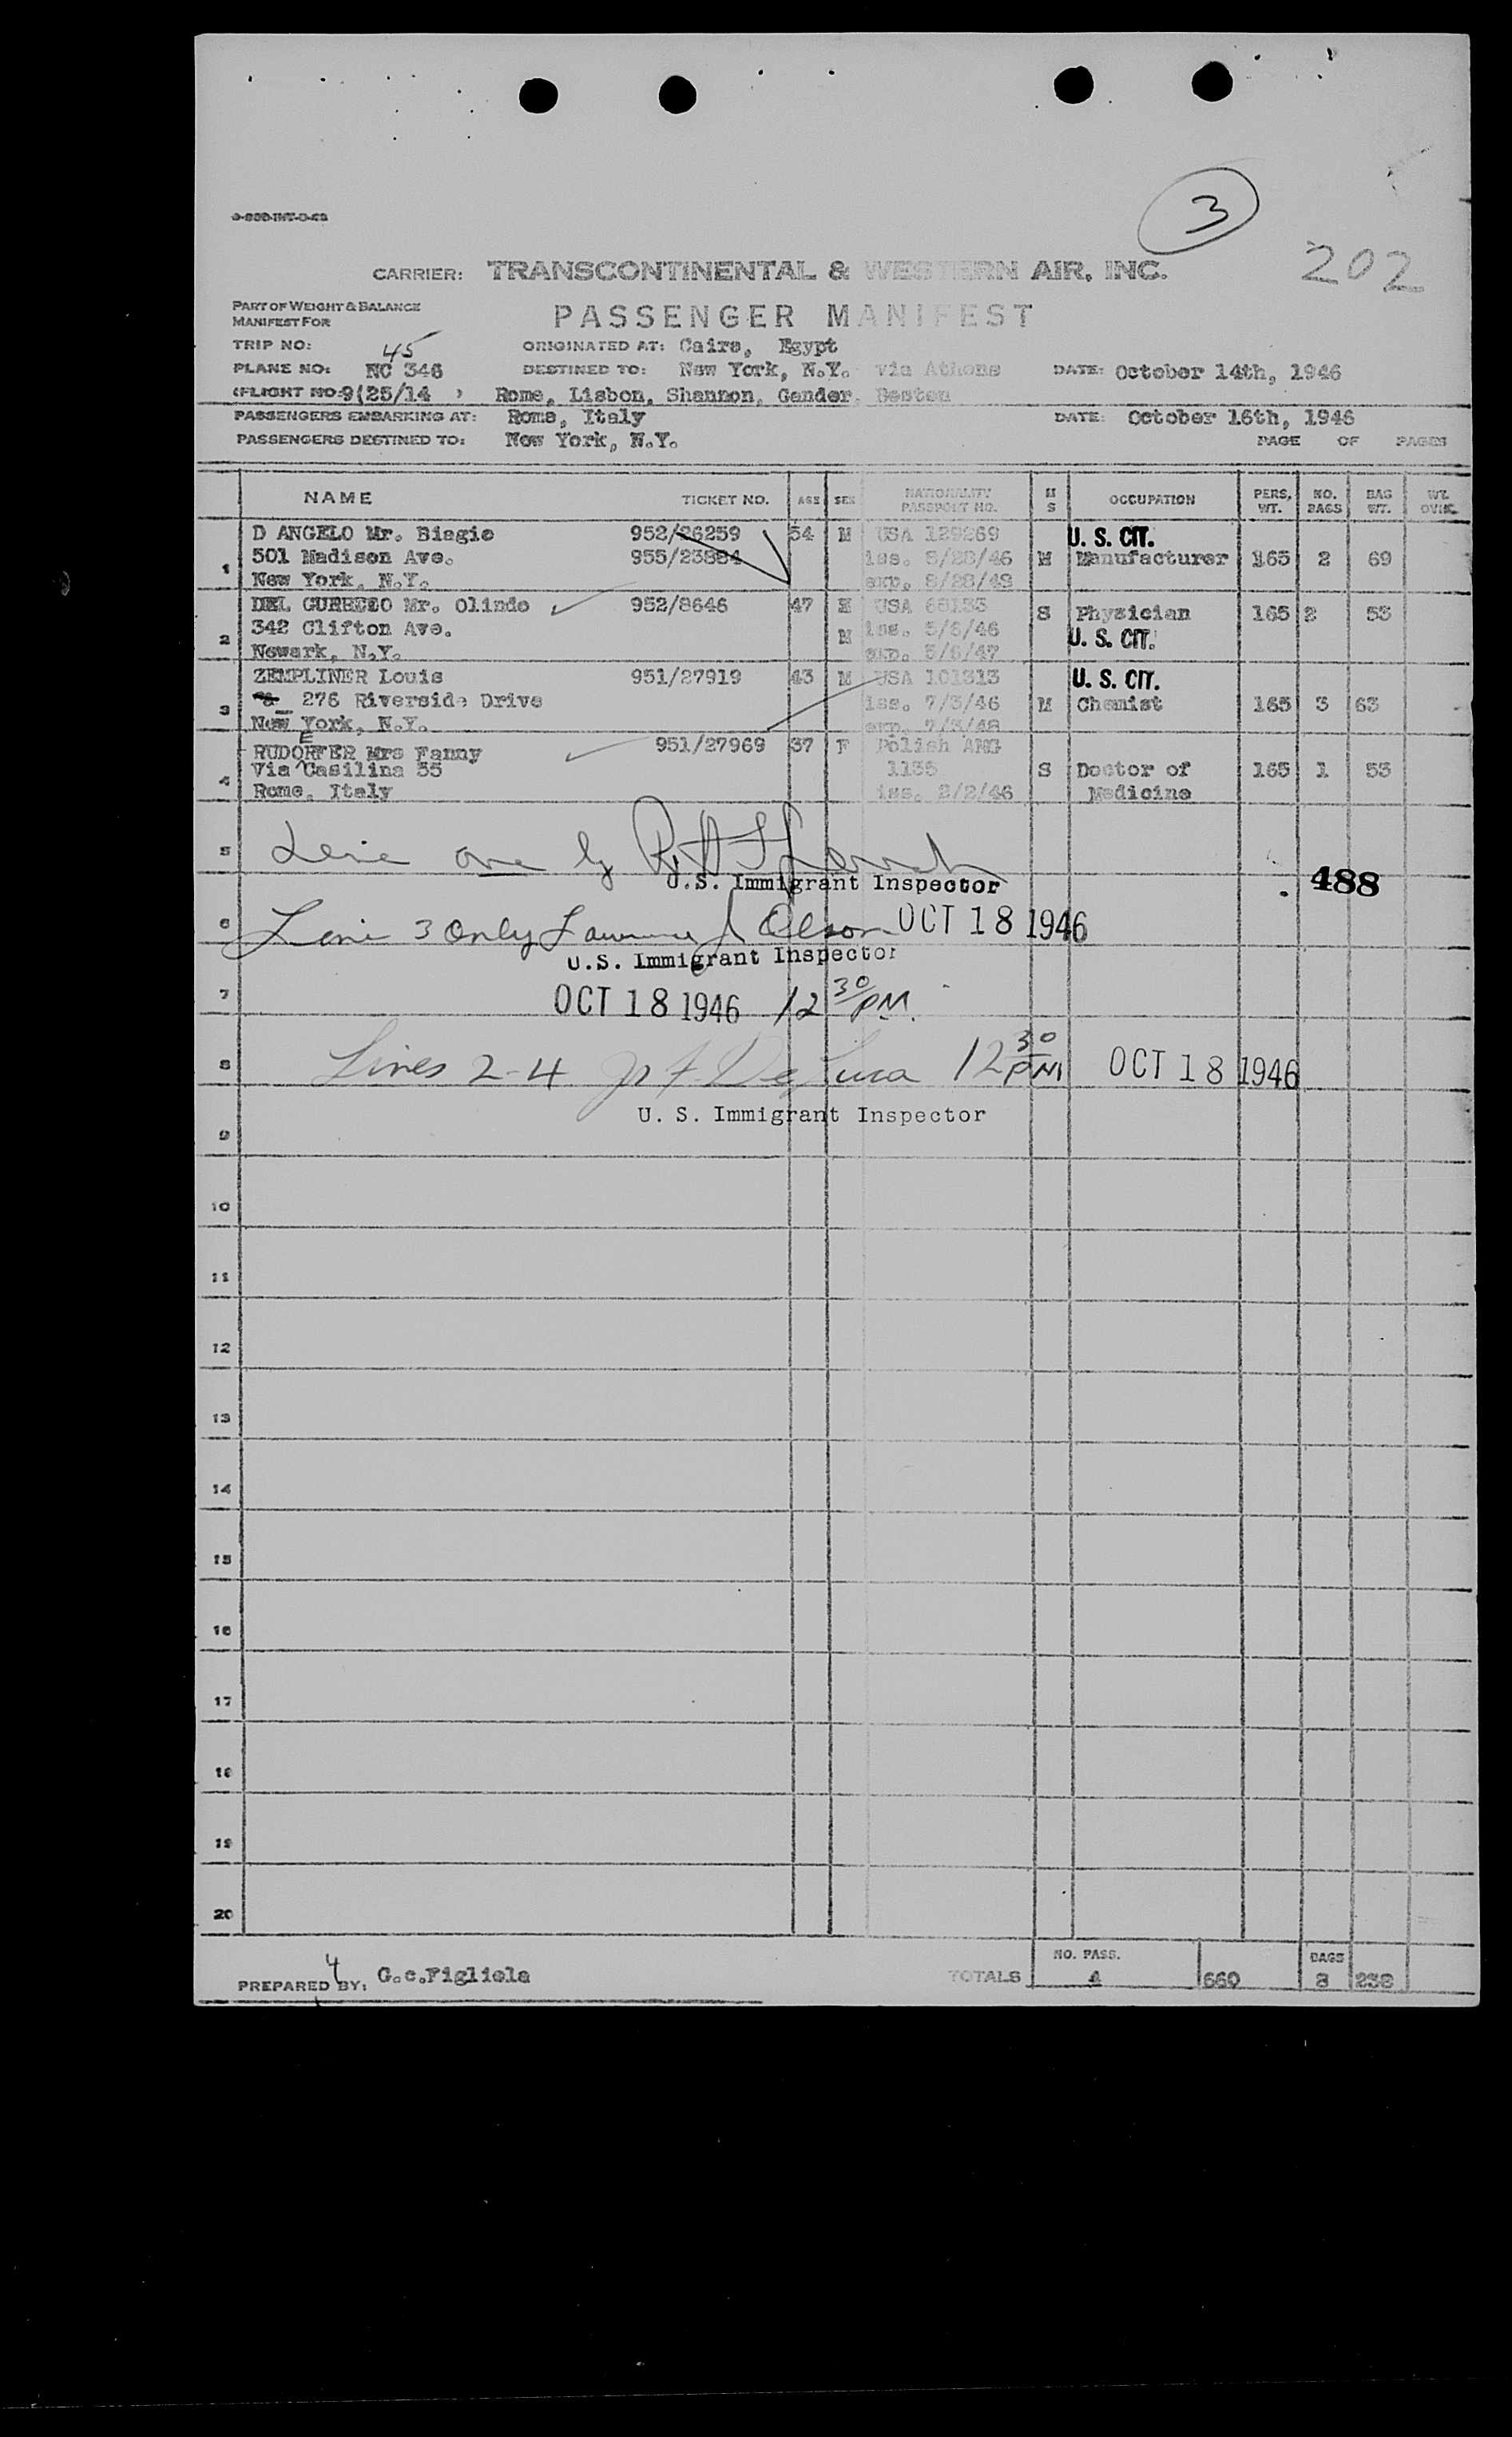 3
202
CARRIER: TRANSCONTINENTAL & WESTERN AIR, INC.
PART OF WEIGHT & BALANCE
MANIFEST FOR
PASSENGER MANIFEST
TRIP NO: 45 ORIGINATED AT: Cairo, Egypt
PLANE NO: NC 346 DESTINED TO: New York, N.Y. via Athens DATE: October 14th, 1946
(FLIGHT NO:9(25/14 ) Rome, Lisbon, Shannon, Gander, Boston
PASSENGERS EMBARKING AT: Rome, Italy DATE: October 16th, 1946
PASSENGERS DESTINED TO: New York, N.Y. PAGE OF PAGES
NAME TICKET NO. AGE SEX NATIONALITY PASSPORT NO. M S OCCUPATION PERS. WT. NO. BAGS BAG WT. WT. OVR.
D ANGELO Mr. Biagio 952/26259 54 M USA 129269 U. S. CIT.
1 501 Madison Ave. 955/23884 iss. 8/28/46 M Manufacturer 165 2 69
New York, N.Y. exp. 8/28/48
DEL GUERCIO Mr. Olindo 952/8646 47 USA 68133 S Physician 165 2 53
2 342 Clifton Ave. M iss. 5/6/46 U. S. CIT.
Newark, N.Y. exp. 5/6/47
ZEMPLINER Louis 951/27919 43 M USA 101313 U. S. CIT.
3 276 Riverside Drive iss. 7/3/46 M Chemist 165 3 63
New York, N.Y. exp. 7/3/48
E
RUDORFER Mrs Fanny 951/27969 37 F Polish AMG
Via Casilina 35 1135 S Doctor of 165 1 53
4 Rome, Italy iss. 2/2/46 Medicine
5 Line one by
U.S. Immigrant Inspector 488
6 Line 3 Only Lawrence J Olson OCT 18 1946
U.S. Immigrant Inspector
7 OCT 18 1946 12 30 PM.
8 Lines 2-4 De Luca 12 30 PM OCT 18 1946
U. S. Immigrant Inspector
9
10
11
12
13
14
15
16
17
18
19
20
4
PREPARED BY: G.c.Figliola TOTALS NO. PASS. 4 660 BAGS 8 238